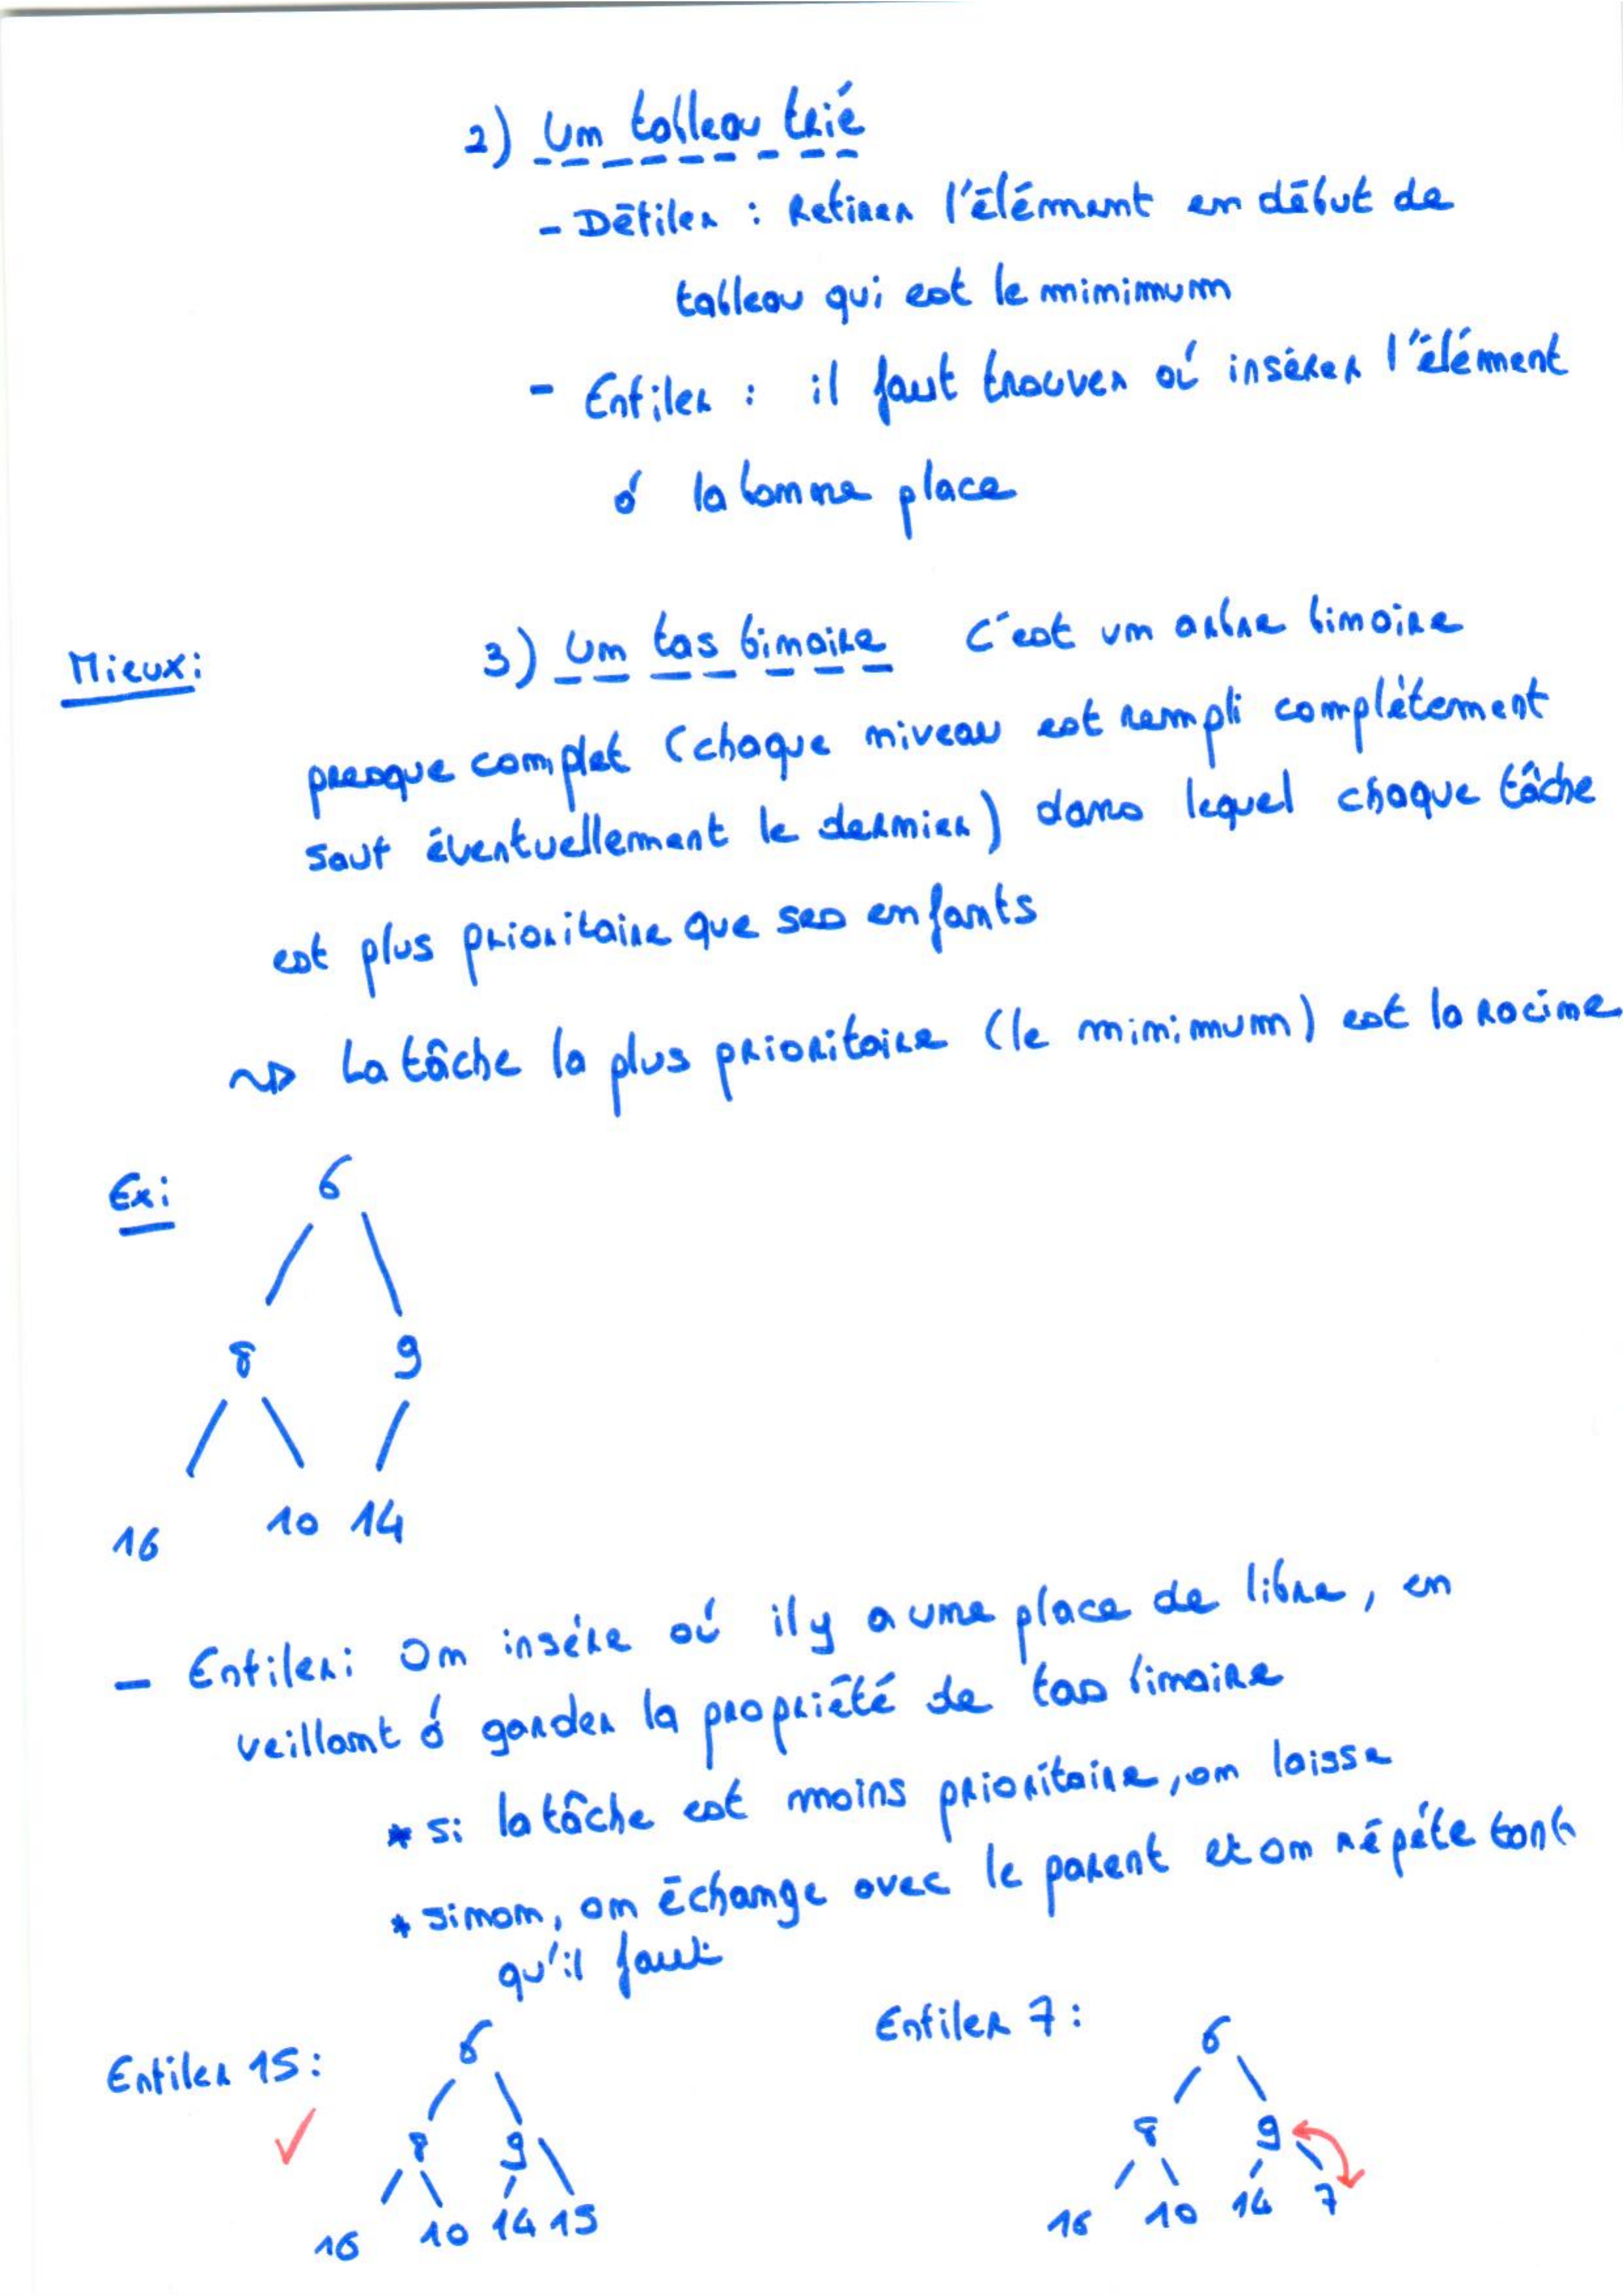 2) Un tableau trié
- Défiler : Retirer l'élément en début de
tableau qui est le minimum
- Enfiler : il faut trouver où insérer l'élément
à la bonne place
Mieux:
3) Un tas binaire C'est un arbre binaire
presque complet (chaque niveau est rempli complètement
sauf éventuellement le dernier) dans lequel chaque tâche
est plus prioritaire que ses enfants
~> La tâche la plus prioritaire (le minimum) est la racine
Ex:
6
8 9
16 10 14
- Enfiler: On insère où il y a une place de libre, en
veillant à garder la propriété de tas binaire
* si la tâche est moins prioritaire, on laisse
* sinon, on échange avec le parent et on répète tant
qu'il faut
Enfiler 15:
6
8 9
16 10 14 15
Enfiler 7:
6
8 9
16 10 14 7